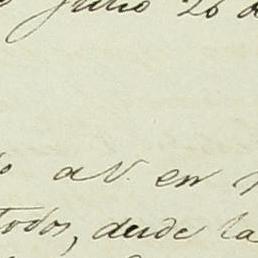 Julio 26 de
a V. en
todos, desde la